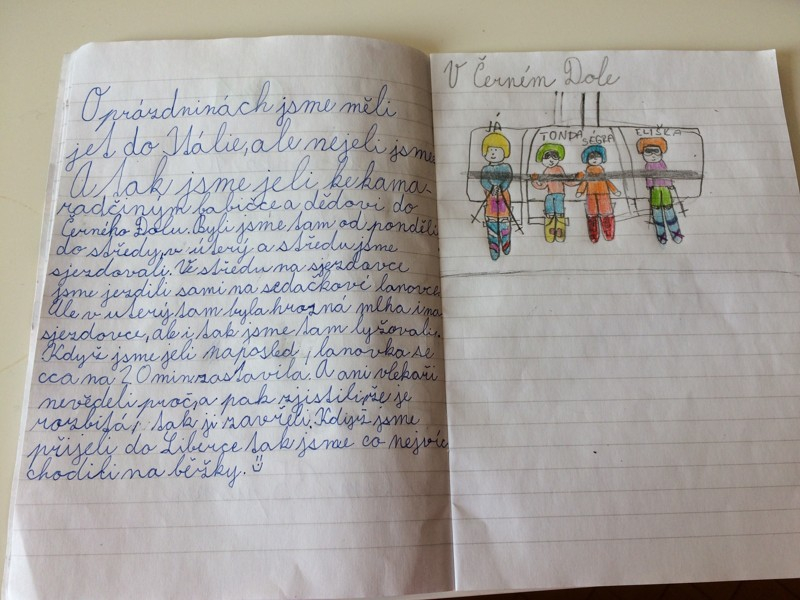 O prázdninách jsme měli
jet do Itálie, ale nejeli jsme.
A tak jsme jeli ke kama-
radčiným babičce a dědovi do
Černého Dolu. Byli jsme tam od pondělí
do středy, v úterý a středu jsme
sjezdovali. Ve středu na sjezdovce
jsme jezdili sami na sedačkové lanovce.
Ale v úterý tam byla hrozná mlha i na
sjezdovce, ale i tak jsme tam lyžovali.
Když jsme jeli naposled, lanovka se
cca na 20 min zastavila. A ani vlekaři
nevěděli proč, a pak zjistili, že je
rozbitá, tak ji zavřeli. Když jsme
přijeli do Liberce tak jsme co nejvíc
chodili na běžky. ☺
V Černém Dole
JÁ
TONDA
SÉGRA
ELIŠKA